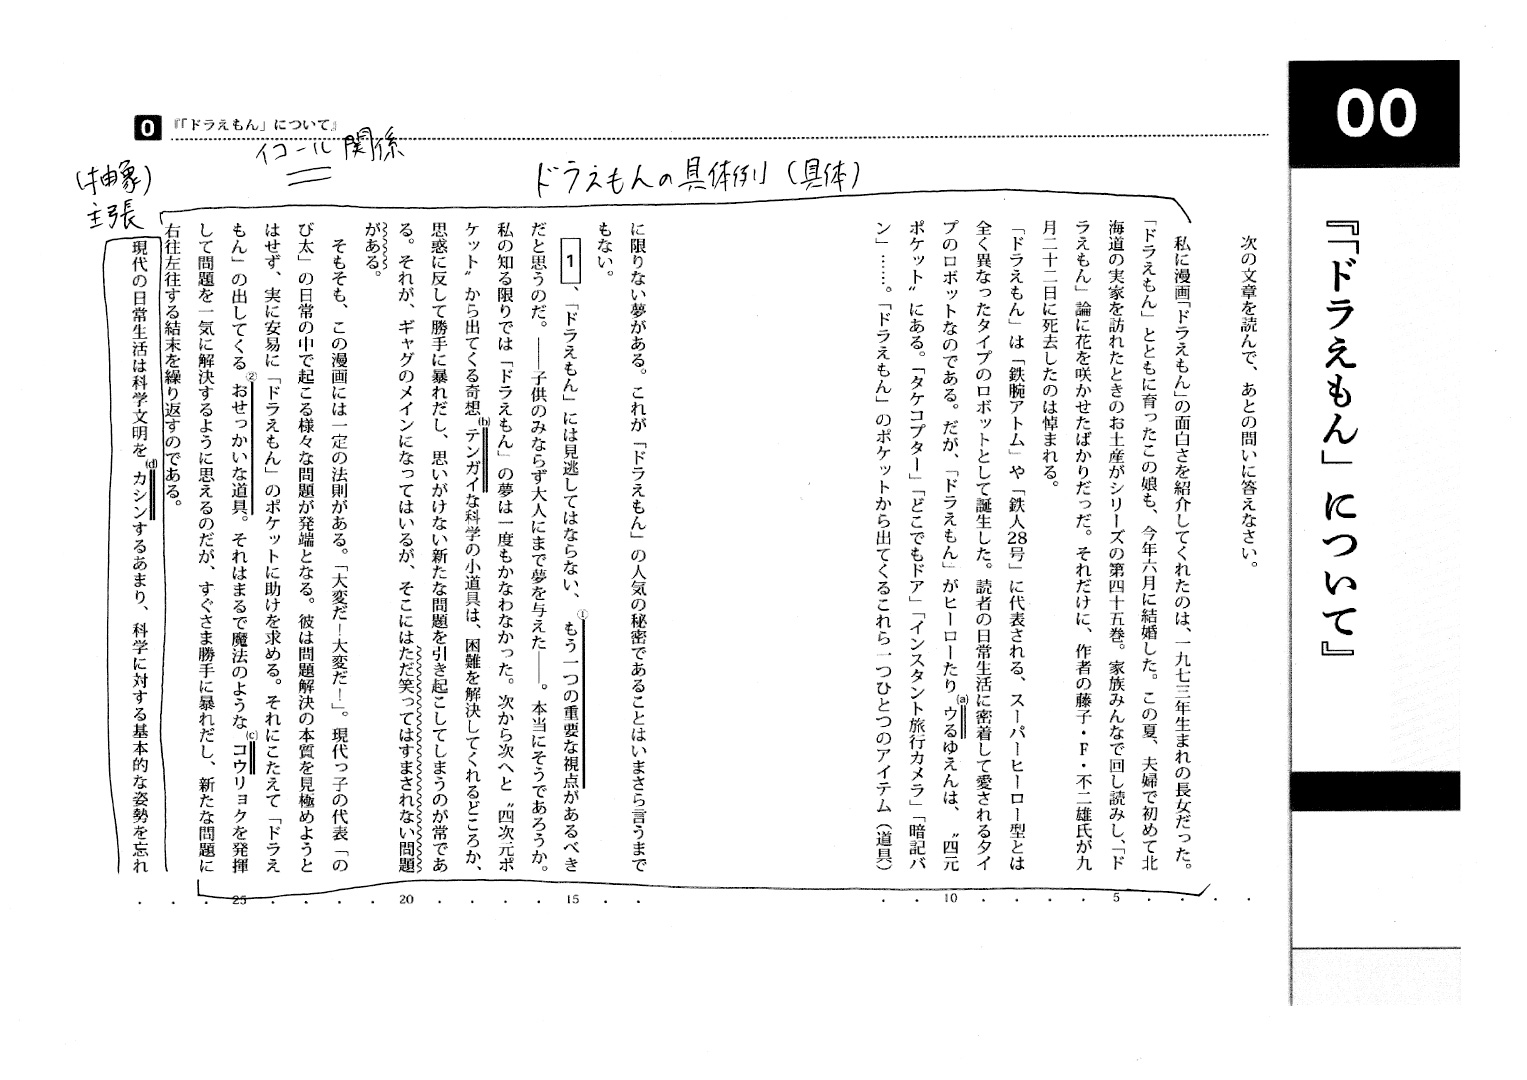 00
『「ドラえもん」について』
0 『「ドラえもん」について』
イコール関係
ドラえもんの具体例」(具体)
(抽象)
主張
次の文章を読んで、あとの問いに答えなさい。
私に漫画「ドラえもん」の面白さを紹介してくれたのは、一九七三年生まれの長女だった。
「ドラえもん」とともに育ったこの娘も、今年六月に結婚した。この夏、夫婦で初めて北
海道の実家を訪れたときのお土産がシリーズの第四十五巻。家族みんなで回し読みし、「ド
ラえもん」論に花を咲かせたばかりだっだ。それだけに、作者の藤子・F・不二雄氏が九
月二十二日に死去したのは悼まれる。
「ドラえもん」は「鉄腕アトム」や「鉄人28号」に代表される、スーパーヒーロー型とは
全く異なったタイプのロボットとして誕生した。読者の日常生活に密着して愛されるタイ
プのロボットなのである。だが、「ドラえもん」がヒーローたり(a)ウるゆえんは、〝四元
ポケット〟にある。「タケコプター」「どこでもドア」「インスタント旅行カメラ」「暗記パ
ン」……。「ドラえもん」のポケットから出てくるこれら一つひとつのアイテム(道具)
に限りない夢がある。これが「ドラえもん」の人気の秘密であることはいまさら言うまで
もない。
1、「ドラえもん」には見逃してはならない、①もう一つの重要な視点があるべき
だと思うのだ。――子供のみならず大人にまで夢を与えた――。本当にそうであろうか。
私の知る限りでは「ドラえもん」の夢は一度もかなわなかった。次から次へと〝四次元ポ
ケット〟から出てくる奇想(b)テンガイな科学の小道具は、困難を解決してくれるどころか、
思惑に反して勝手に暴れだし、思いがけない新たな問題を引き起こしてしまうのが常であ
る。それが、ギャグのメインになってはいるが、そこにはただ笑ってはすまされない問題
がある。
そもそも、この漫画には一定の法則がある。「大変だ!大変だ!」。現代っ子の代表「の
び太」の日常の中で起こる様々な問題が発端となる。彼は問題解決の本質を見極めようと
はせず、実に安易に「ドラえもん」のポケットに助けを求める。それにこたえて「ドラえ
もん」の出してくる②おせっかいな道具。それはまるで魔法のような(c)コウリョクを発揮
して問題を一気に解決するように思えるのだが、すぐさま勝手に暴れだし、新たな問題に
右往左往する結末を繰り返すのである。
現代の日常生活は科学文明を(d)カシンするあまり、科学に対する基本的な姿勢を忘れ
5
10
15
20
25